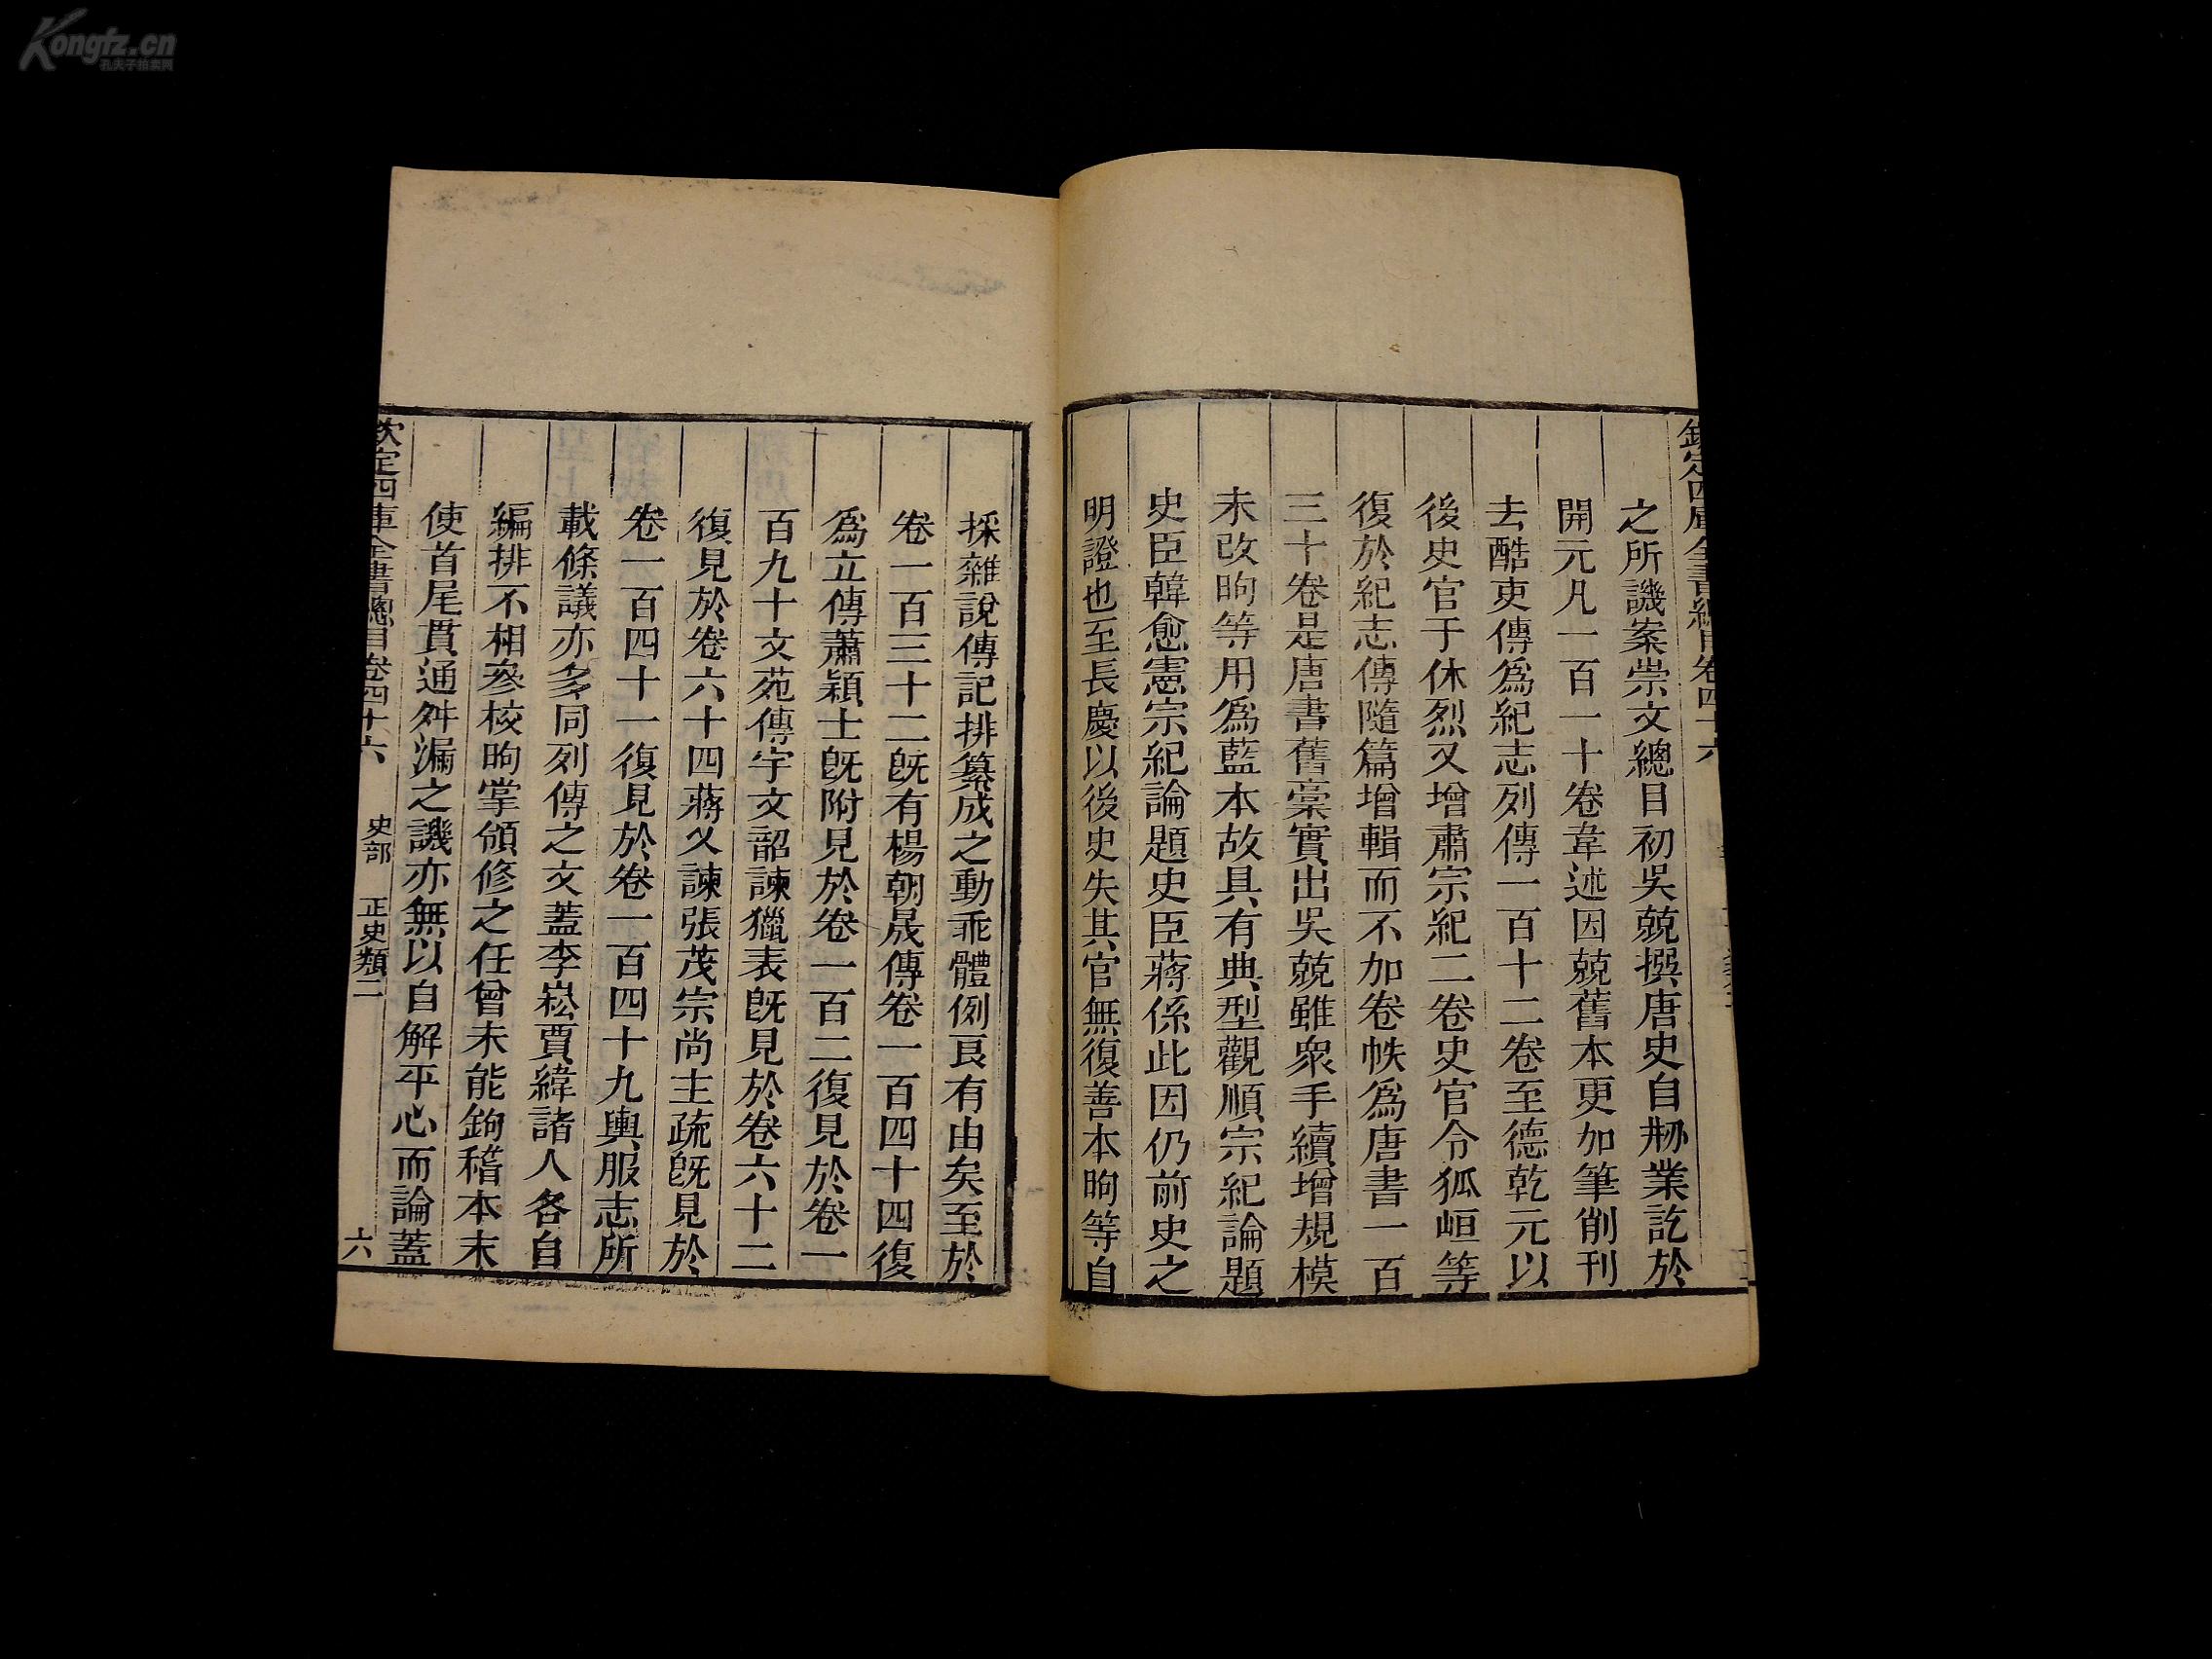 Kongfz.cn
孔夫子拍卖网
之所譏案崇文總目初吳兢撰唐史自刱業訖於
開元凡一百一十卷韋述因兢舊本更加筆削刊
去酷吏傳爲紀志列傳一百十二卷至德乾元以
後史官于休烈又增肅宗紀二卷史官令狐峘等
復於紀志傳隨篇增輯而不加卷帙爲唐書一百
三十卷是唐書舊稾實出吳兢雖衆手續增規模
未改昫等用爲藍本故具有典型觀順宗紀論題
史臣韓愈憲宗紀論題史臣蔣係此因仍前史之
明證也至長慶以後史失其官無復善本昫等自
採雜說傳記排纂成之動乖體例㫐有由矣至於
卷一百三十二旣有楊朝晟傳卷一百四十四復
爲立傳蕭穎士旣附見於卷一百二復見於卷一
百九十文苑傳宇文韶諫獵表旣見於卷六十二
復見於卷六十四蔣乂諫張茂宗尚主疏旣見於
卷一百四十一復見於卷一百四十九輿服志所
載條議亦多同列傳之文蓋李崧賈緯諸人各自
編排不相參校昫掌領修之任曾未能鉤稽本末
使首尾貫通舛漏之譏亦無以自解平心而論蓋
欽定四庫全書總目卷四十六 史部 正史類二 六